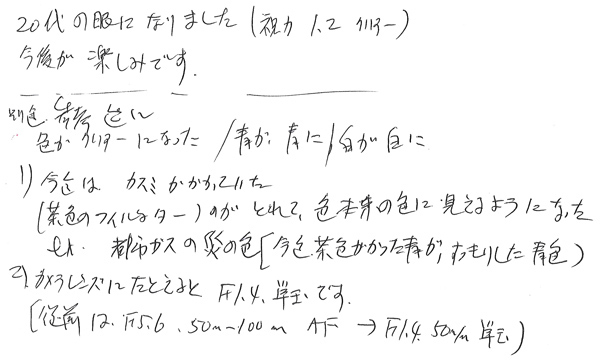 20代の眼になりました(視力 1.2 クリアー)
今後が楽しみです.
色がクリアーになった / 青が 青に / 白が白に
1) 今迄は カスミがかかっていた
(茶色のフィルター)のが とれて、色本来の色に見えるようになった
都市ガスの炎の色[今迄 茶色がかった青が, すっきりした青色)
2) カメラレンズにたとえると F1.4. 単玉です.
[従前は. F5.6 . 50m~100m AF → F1.4. 50m/m 単玉)